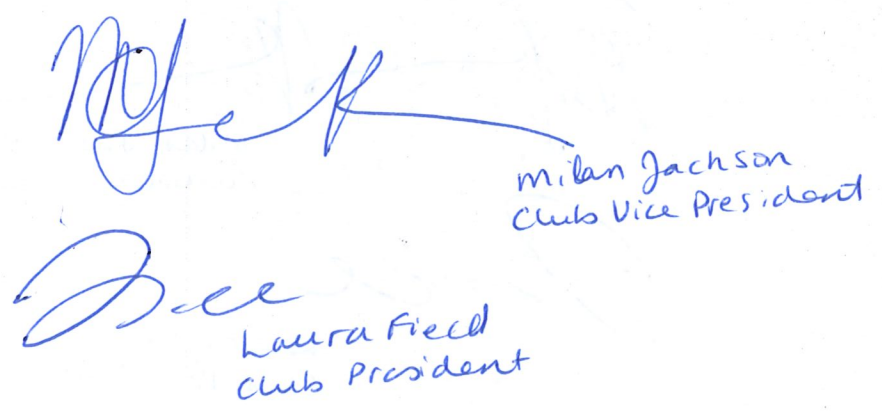 Milan Jackson
Club Vice President
Laura Field
Club President